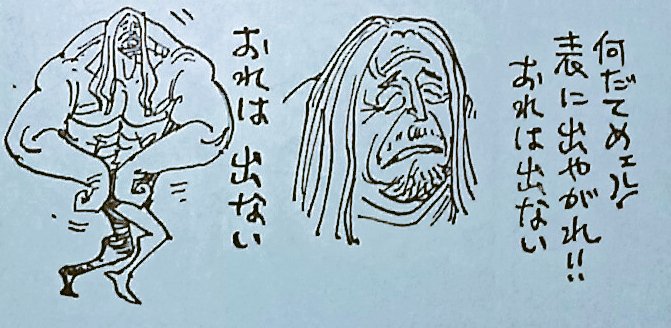 何だてめェ!!
表に出やがれ!!
おれは出ない
おれは 出ない